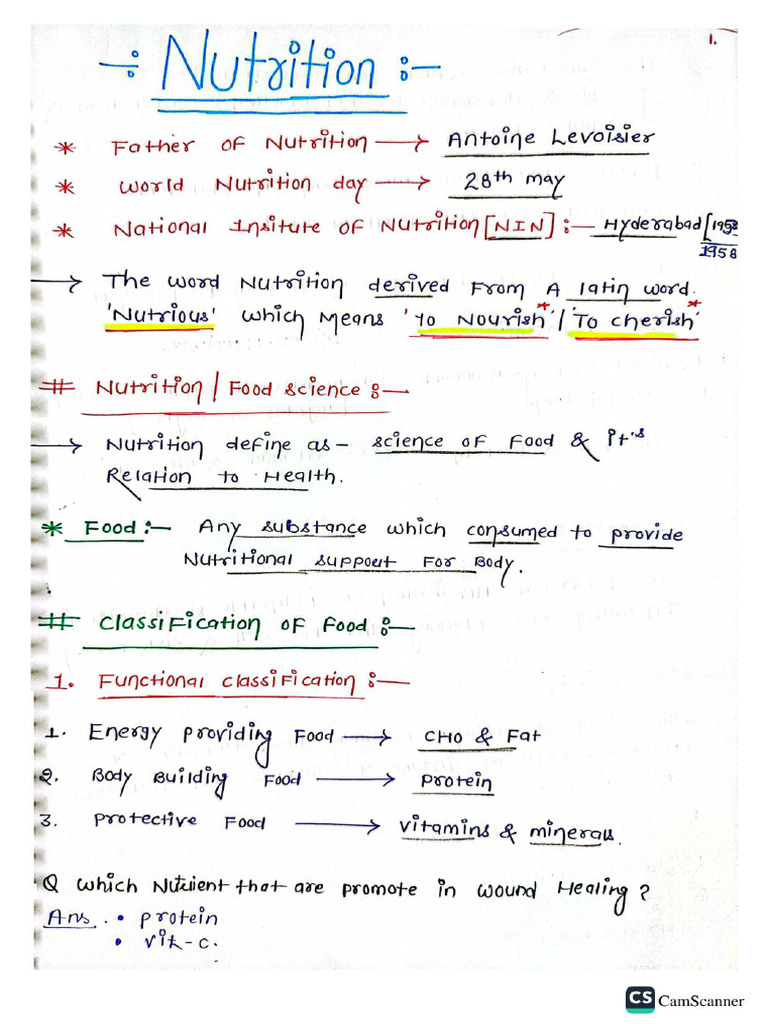 1.
÷ Nutrition :-
* Father of Nutrition → Antoine Levoisier
* World Nutrition day → 28th may
* National Insitute of Nutrition [NIN] :- Hyderabad [1958
1958
→ The word Nutrition derived from A latin word.
'Nutrious' which means 'To Nourish* / 'To cherish*'
# Nutrition / Food science :-
→ Nutrition define as - science of Food & it's
Relation to Health.
* Food :- Any substance which consumed to provide
Nutritional suppout for Body.
# Classification of food :-
1. Functional classification :-
1. Energy providing Food → CHO & Fat
2. Body Building Food → protein
3. protective Food → vitamins & minerals.
Q which Nutuient that are promote in wound Healing ?
Ans. • protein
• vit-c.
CS CamScanner